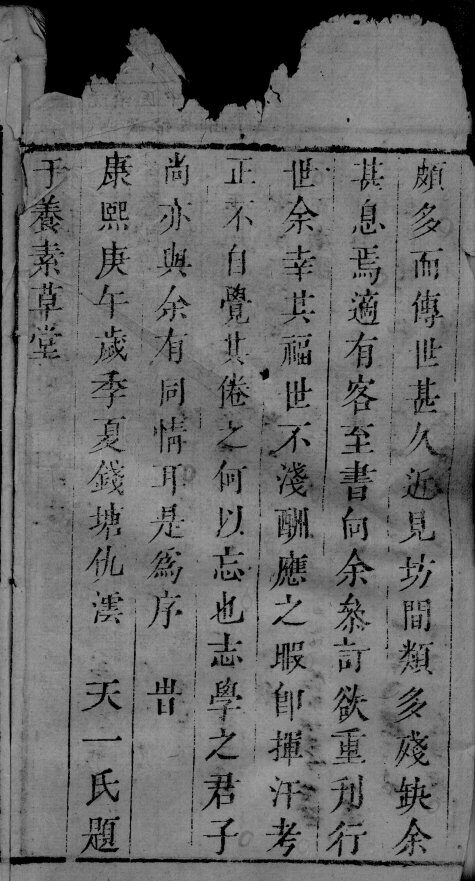 頗多而傳世甚久近見坊間類多殘缺余
甚息焉適有客至書向余叅訂欲重刋行
世余幸其福世不淺酬應之暇卽揮汗考
正不自覺其倦之何以忘也志學之君子
尚亦與余有同情耳是爲序　旹
康熙庚午歲季夏錢塘仇澐　天一氏題
于養素草堂